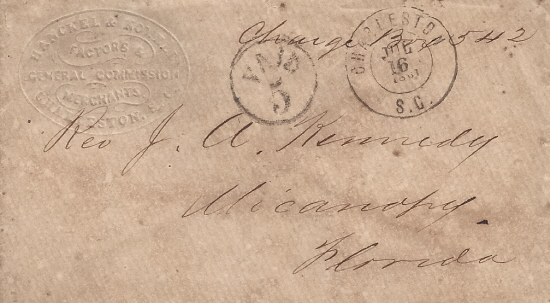 HENCKEL &
FACTORS &
GENERAL COMMISSION
MERCHANTS
CHARLESTON, S.C.
Charge Box 542
PAID
5
CHARLESTON
JUL
16
1861
S.C.
Rev J. A. Kennedy
Micanopy
Florida